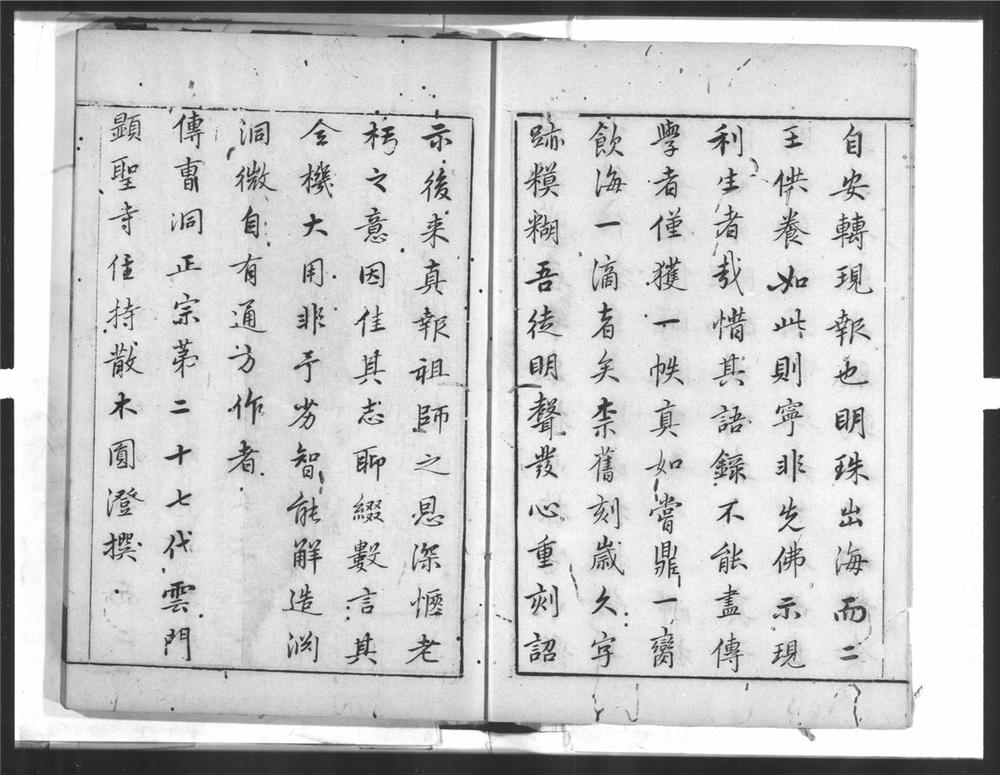 自安轉現報也明珠出海而二
王供養如此則寧非先佛示現
利生者哉惜其語錄不能盡傳
學者僅獲一帙真如嘗鼎一臠
飲海一滴者矣柰舊刻歲久字
跡糢糊吾徒明聲發心重刻詔
示後来真報祖師之恩深愜老
朽之意因佳其志聊綴數言其
全機大用非予劣智能解造淵
洞微自有通方作者
傳曹洞正宗第二十七代雲門
顯聖寺住持散木圓澄撰